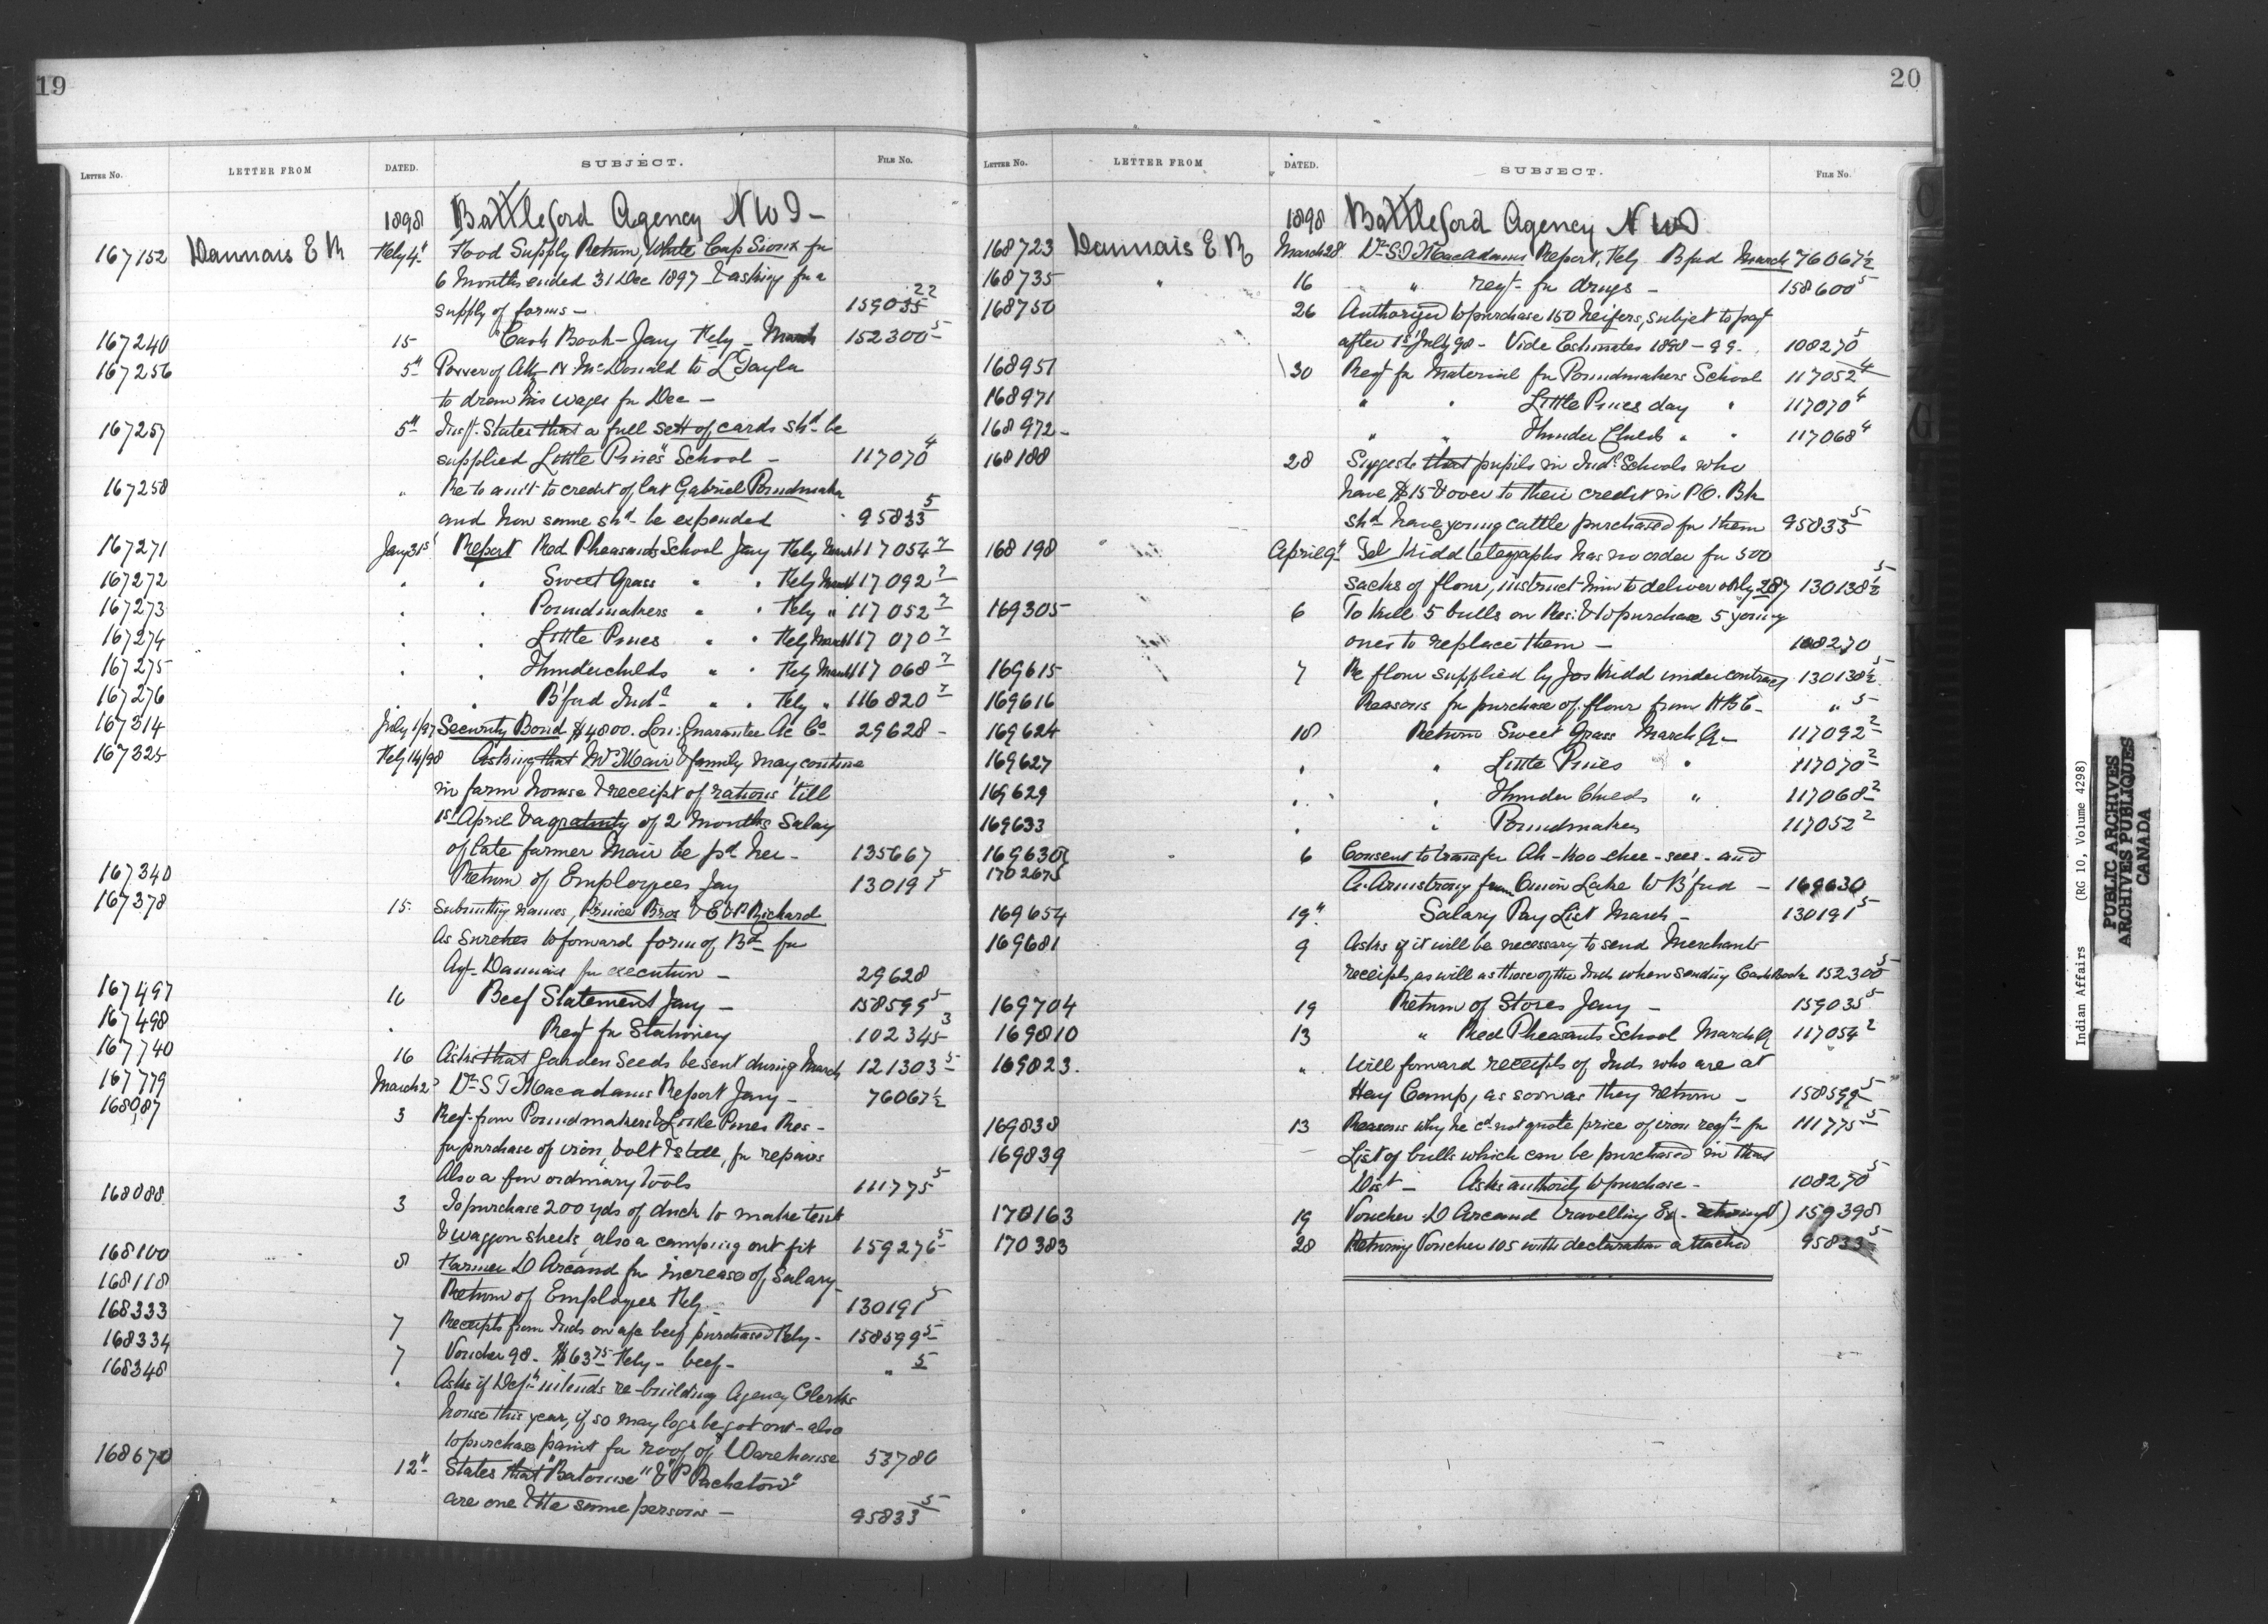 19
LETTER No. LETTER FROM DATED. SUBJECT. FILE No.
1898 Battleford Agency N W T -
167152 Daunais E M Feby 4th Food Supply Return, White Cap Sioux for
6 Months ended 31 Dec 1897 & asking for a
supply of forms - 159035 22
167240 15 Cash Book - Jany Feby March 152300 5
167256 5th Power of Atty N McDonald to L Taylor
to draw his wages for Dec -
167257 5th Insp. States that a full sett of cards shd be
supplied Little Pine's School - 117070 4
167258 " Re to amt to credit of late Gabriel Poundmaker
and how same shd be expended 95833 5
167271 Jany 31st Report Red Pheasants School Jany Feby March 117054 7
167272 " " Sweet Grass " " Feby March 117092 7
167273 " " Poundmakers " " Feby " 117052 7
167274 " " Little Pines " " Feby March 117070 7
167275 " " Thunderchilds " " Feby March 117068 7
167276 " B'ford Indl " " Feby " 116820 7
167314 July 1/97 Security Bond $4800. Lon: Guarantee Ac Co 29628 -
167325 Feby 14/98 Asking that Mrs Mair & family may continue
in farm house & receipt of rations 'till
1st April & a gratuity of 2 Months Salary
of late farmer Mair be pd her - 135667
167340 Return of Employees Jany 130191 5
167378 15 Submitting names, Prince Bros & E & P Richard
As Sureties to forward form of Bd for
Agt Daunais for execution - 29628
167497 16 Beef Statement Jany - 158599 5
167498 " Reqt for Stationery 102345 3
167740 16 Asks that Garden Seeds be sent during March 121303 5
167779 March 2d Dr S T Macadams Report Jany - 76067½
168087 3 Reqt from Poundmakers & Little Pines Res -
for purchase of iron, bolt & steel, for repairs
Also a few ordinary tools 111775 5
168088 3 To purchase 200 yds of duck to make tent
& waggon sheets, also a camping out fit 159276 5
168100 8 Farmer D Arcand for increase of Salary
168118 Return of Employes Feby - 130191 5
168333 7 Receipts from Inds on a/c beef purchased Feby - 158599 5
168334 7 Voucher 98 - $63 75 Feby - beef - " 5
168348 " Asks if Dept intends re-building Agency Clerks
house this year, if so may logs be got out - also
to purchase paint for roof of Warehouse 53780
168670 12th States that "Batouise" & "P Pacheton"
are one & the same persons - 95833 5
20
LETTER No. LETTER FROM DATED. SUBJECT. FILE No.
1898 Battleford Agency N W T
168723 Daunais E M March 28 Dr S T Macadams Report, Feby B'ford March 76067½
168735 " 16 " reqt for drugs - 158600 5
168750 26 Authorized to purchase 150 heifers, subject to payt
after 1st July 98 - Vide Estimates 1898-99 - 108270 5
168951 30 Reqt for Material for Poundmakers School 117052 4
168971 " " Little Pines day " 117070 4
168972 - " " Thunder Childs " " 117068 4
168188 28 Suggests that pupils in Indl Schools who
have $15 & over to their credit in P.O. Bk
shd have young cattle purchased for them 95833 5
168198 " April 9th Tel Kidd telegraphs has no order for 500
sacks of flour, instruct him to deliver only 287 130138½ 5
169305 6 To kill 5 bulls on Res: & to purchase 5 young
ones to replace them - 108270
169615 7 Re flour supplied by Jos Kidd under contract 130138½ 5
169616 Reasons for purchase of flour from HBC - " 5
169624 18 Return Sweet Grass March Qr - 117092 2
169627 " " Little Pines " 117070 2
169629 " " Thunder Childs " 117068 2
169633 " " Poundmakers 117052 2
169630 6 Consent to transfer Ah-koo-chee-sees - and
170267 5 A. Armstrong from Onion Lake to B'ford - 169630
169654 19th Salary Pay List March - 130191 5
169681 9 Asks if it will be necessary to send Merchants
receipts, as will as those of the Inds when sending Cash Book 152300 5
169704 19 Return of Stores Jany - 159035 5
169810 13 " Red Pheasants School March Q 117054 2
169823. " Will forward receipts of Inds who are at
Hay Camp, as soon as they return - 158599 5
169838 13 Reasons why he cd not quote price of iron reqd for 111775 5
169839 List of bulls which can be purchased in that
Dist - Asks authority to purchase - 108270 5
170163 19 Voucher D Arcand travelling Ex 159398
170383 28 Returning Voucher 105 with declaration attached 95833 5
Indian Affairs (RG 10, Volume 4298)
PUBLIC ARCHIVES
ARCHIVES PUBLIQUES
CANADA